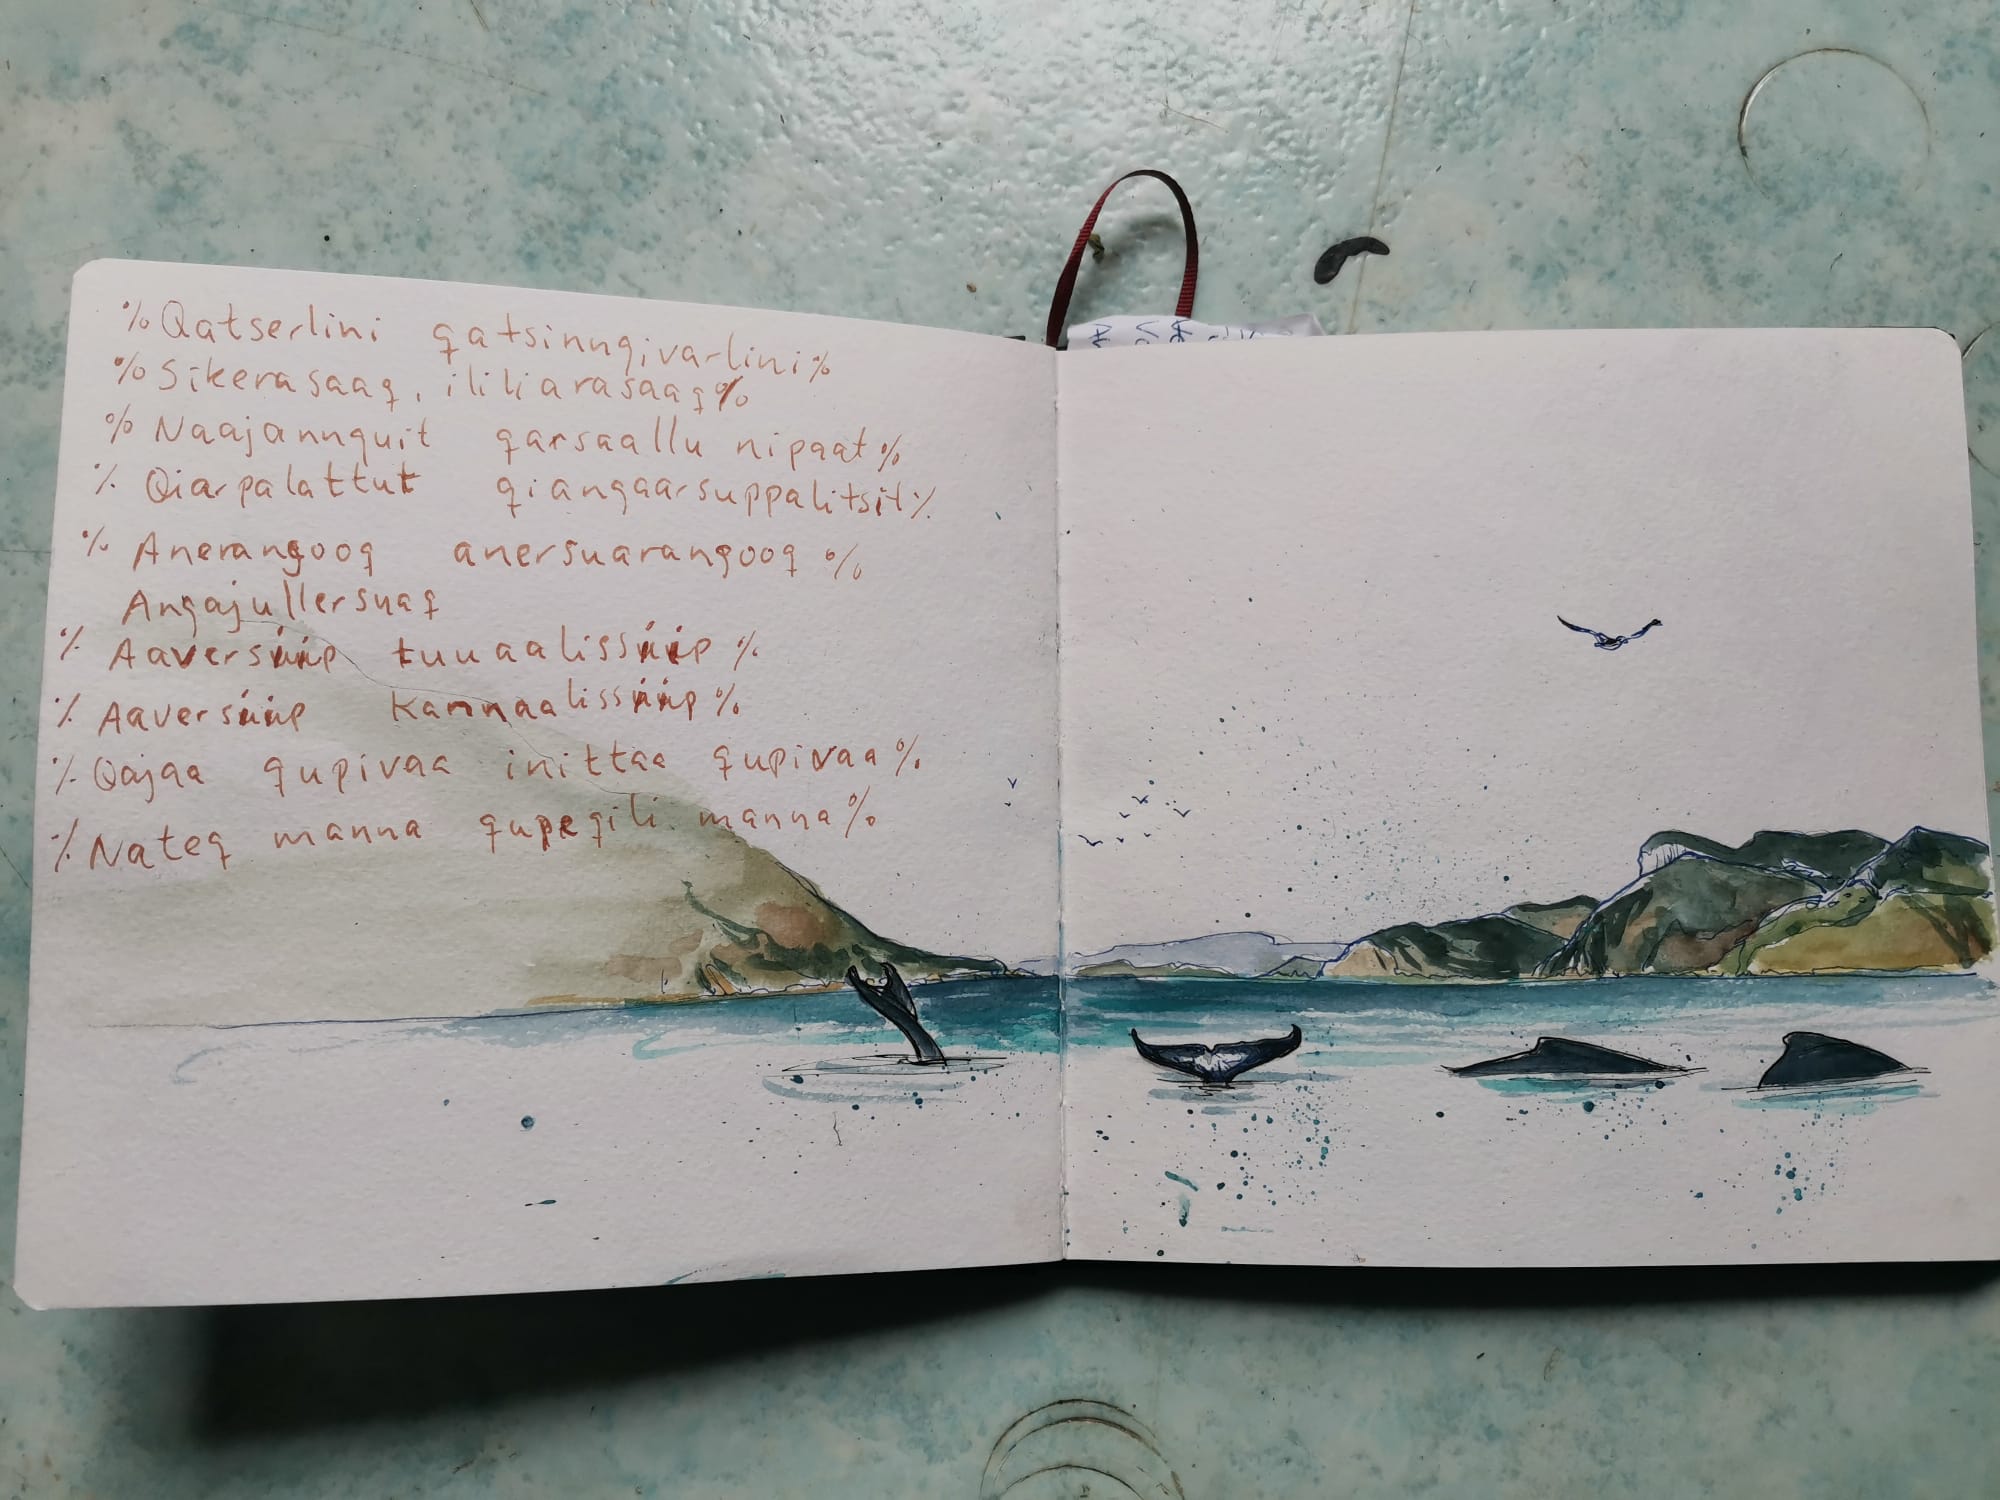 % Qatserlini qatsinngivarlini %
% Sikerasaaq, ililiarasaaq %
% Naajannguit qarsaallu nipaat %
% Qiarpalattut qiangaarsuppalitsit %
% Anerangooq anersuarangooq %
Angajullersuaq
% Aaversüüp tuuaalissüüp %
% Aaversüüp kannaalissüüp %
% Qajaa qupivaa inittaa qupivaa %
% Nateq manna qupeqili manna %